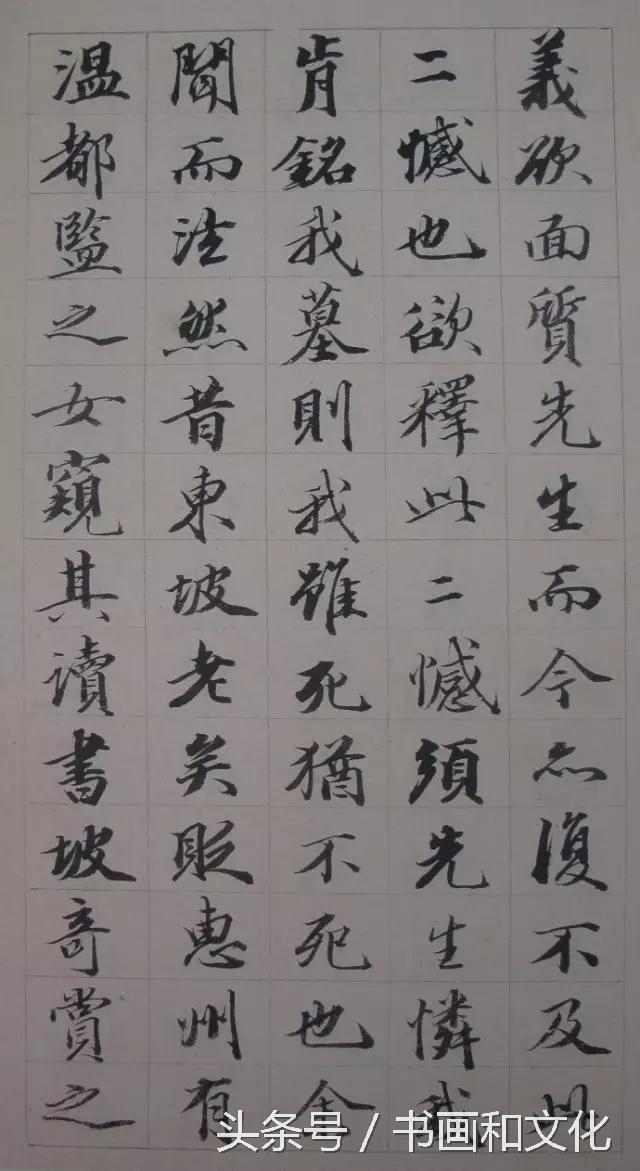 義欲面質先生而今亦復不及此
二憾也欲釋此二憾須先生憐我
肯銘我墓則我雖死猶不死也余
聞而泫然昔東坡老矣貶惠州有
溫都監之女窺其讀書坡奇賞之
头条号 / 书画和文化